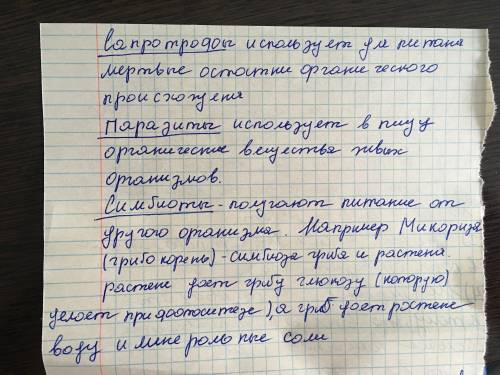 Сапротрофы использует для питана
мертвые остатки органического
происхожденя
Паразиты использует в пищу
органические вещества живых
организмов.
Симбиоты - получают питание от
другого организма. Например Микориза
(грибо корень) - симбиоза гриба и растена.
растене дает грибу глюкозу (которую)
делает при фотосинтезе), а гриб дает растене
воду и мине ральные соли